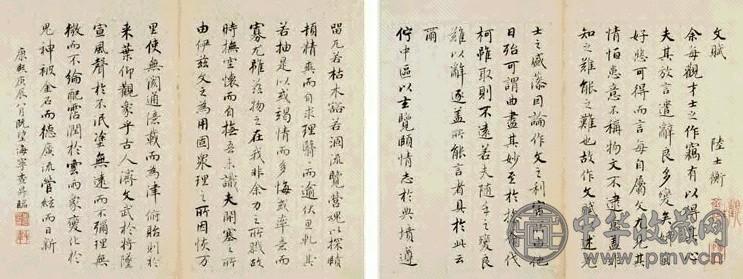 文賦 陸士衡
余每觀才士之作竊有以得其心
夫其放言遣辭良多變矣妍蚩
好惡可得而言每自屬文尤見其
情恒患意不稱物文不逮意蓋非
知之難能之難也故作文賦以述先
士之盛藻因論作文之利害所由他
日殆可謂曲盡其妙至於操斧伐
柯雖取則不遠若夫隨手之變良
難以辭逐蓋所能言者具於此云
爾
佇中區以玄覽頤情志於典墳遵
留兀若枯木豁若涸流覽營魂以探賾
頓精爽而自求理翳而逾伏思軋其
若抽是以或竭情而多悔或率意而
寡尤雖茲物之在我非余力之所戮故
時撫空懷而自惋吾未識夫開塞所
由伊茲文之為用固眾理之所因恢万
里使無閡通億載而為津俯貽則於
來葉仰觀象乎古人濟文武於將墜
宣風聲於不泯塗無遠而不彌理無
微而不綸配霑潤於雲雨象變化於
鬼神被金石而德廣流管絃而日新
康熙庚辰八月既望海寧查昇臨
中华收藏网
www.pmv.cn